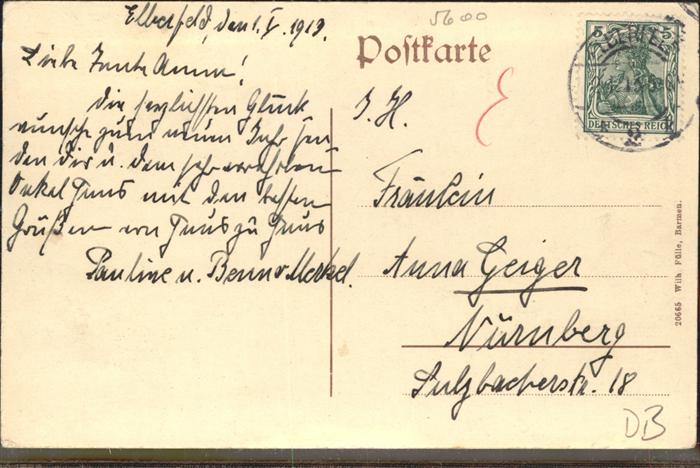 Elberfeld, den 1. I. 1913.
Liebe Tante Anna!
Die herzlichsten Glück
wünsche zum neuen Jahr sen
den dir u. dem sehr verehrten
Onkel Haus mit den besten
Grüßen von Haus zu Haus
Pauline u. Benno Merkel.
5600
Postkarte
5 5
DEUTSCHES REICH
S. H.
E
Fräulein
Anna Geiger
Nürnberg
Sulzbacherstr. 18
DB
20665 Wilh. Fülle, Barmen.